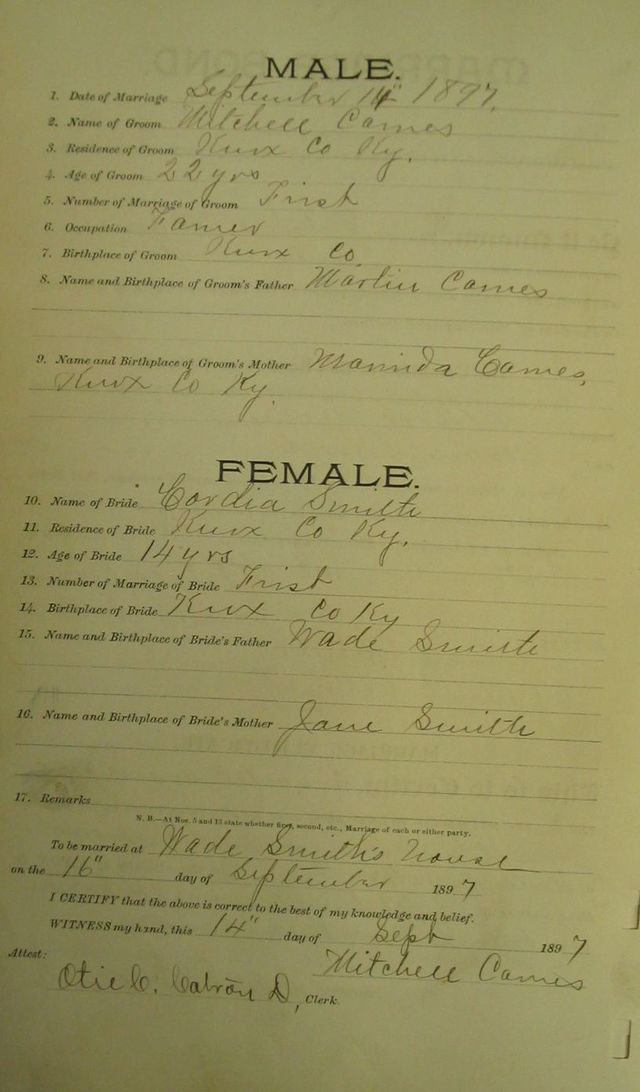 MALE.
1. Date of Marriage September 14" 1897.
2. Name of Groom Mitchell Carnes
3. Residence of Groom Knox Co Ky.
4. Age of Groom 22 yrs
5. Number of Marriage of Groom First
6. Occupation Farmer
7. Birthplace of Groom Knox Co
8. Name and Birthplace of Groom's Father Martin Carnes
9. Name and Birthplace of Groom's Mother Marinda Carnes,
Knox Co Ky.
FEMALE.
10. Name of Bride Cordia Smith
11. Residence of Bride Knox Co Ky.
12. Age of Bride 14 yrs
13. Number of Marriage of Bride First
14. Birthplace of Bride Knox Co Ky
15. Name and Birthplace of Bride's Father Wade Smith
16. Name and Birthplace of Bride's Mother Jane Smith
17. Remarks
N. B.—At Nos. 5 and 13 state whether first, second, etc., Marriage of each or either party.
To be married at Wade Smith's house
on the 16" day of September 1897
I CERTIFY that the above is correct to the best of my knowledge and belief.
WITNESS my hand, this 14" day of Sept 1897
Mitchell Carnes
Attest:
Otie C. Catron D, Clerk.